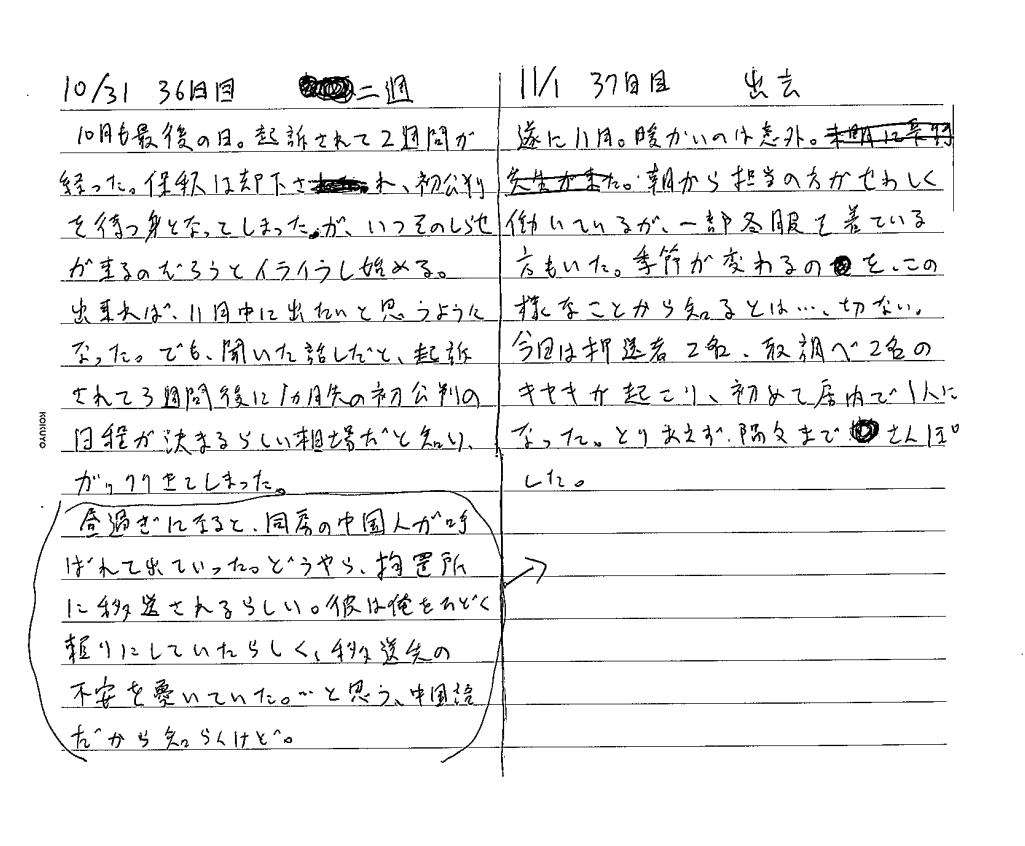 10/31 36日目 二週
10月も最後の日。起訴されて2週間が
経った。保釈は却下され、初公判
を待つ身となってしまった。が、いつそのしらせ
が来るのだろうとイライラし始める。
出来れば、11月中に出たいと思うように
なった。でも、聞いた話しだと、起訴
されて3週間後に1カ月先の初公判の
日程が決まるらしい相場だと知り、
ガックリきてしまった。
昼過ぎになると、同房の中国人が呼
ばれて出ていった。どうやら、拘置所
に移送されるらしい。彼は俺をひどく
頼りにしていたらしく、移送先の
不安を憂いていた。…と思う、中国語
だから知らんけど。
KOKUYO
11/1 37日目 出去
遂に11月。暖かいのは意外。
朝から担当の方がせわしく
働いているが、一部冬服を着ている
方もいた。季節が変わるのを、この
様なことから知るとは…、切ない。
今回は押送者2名、取調べ2名の
キセキが起こり、初めて房内で1人に
なった。とりあえず、隅々まで さんぽ
した。